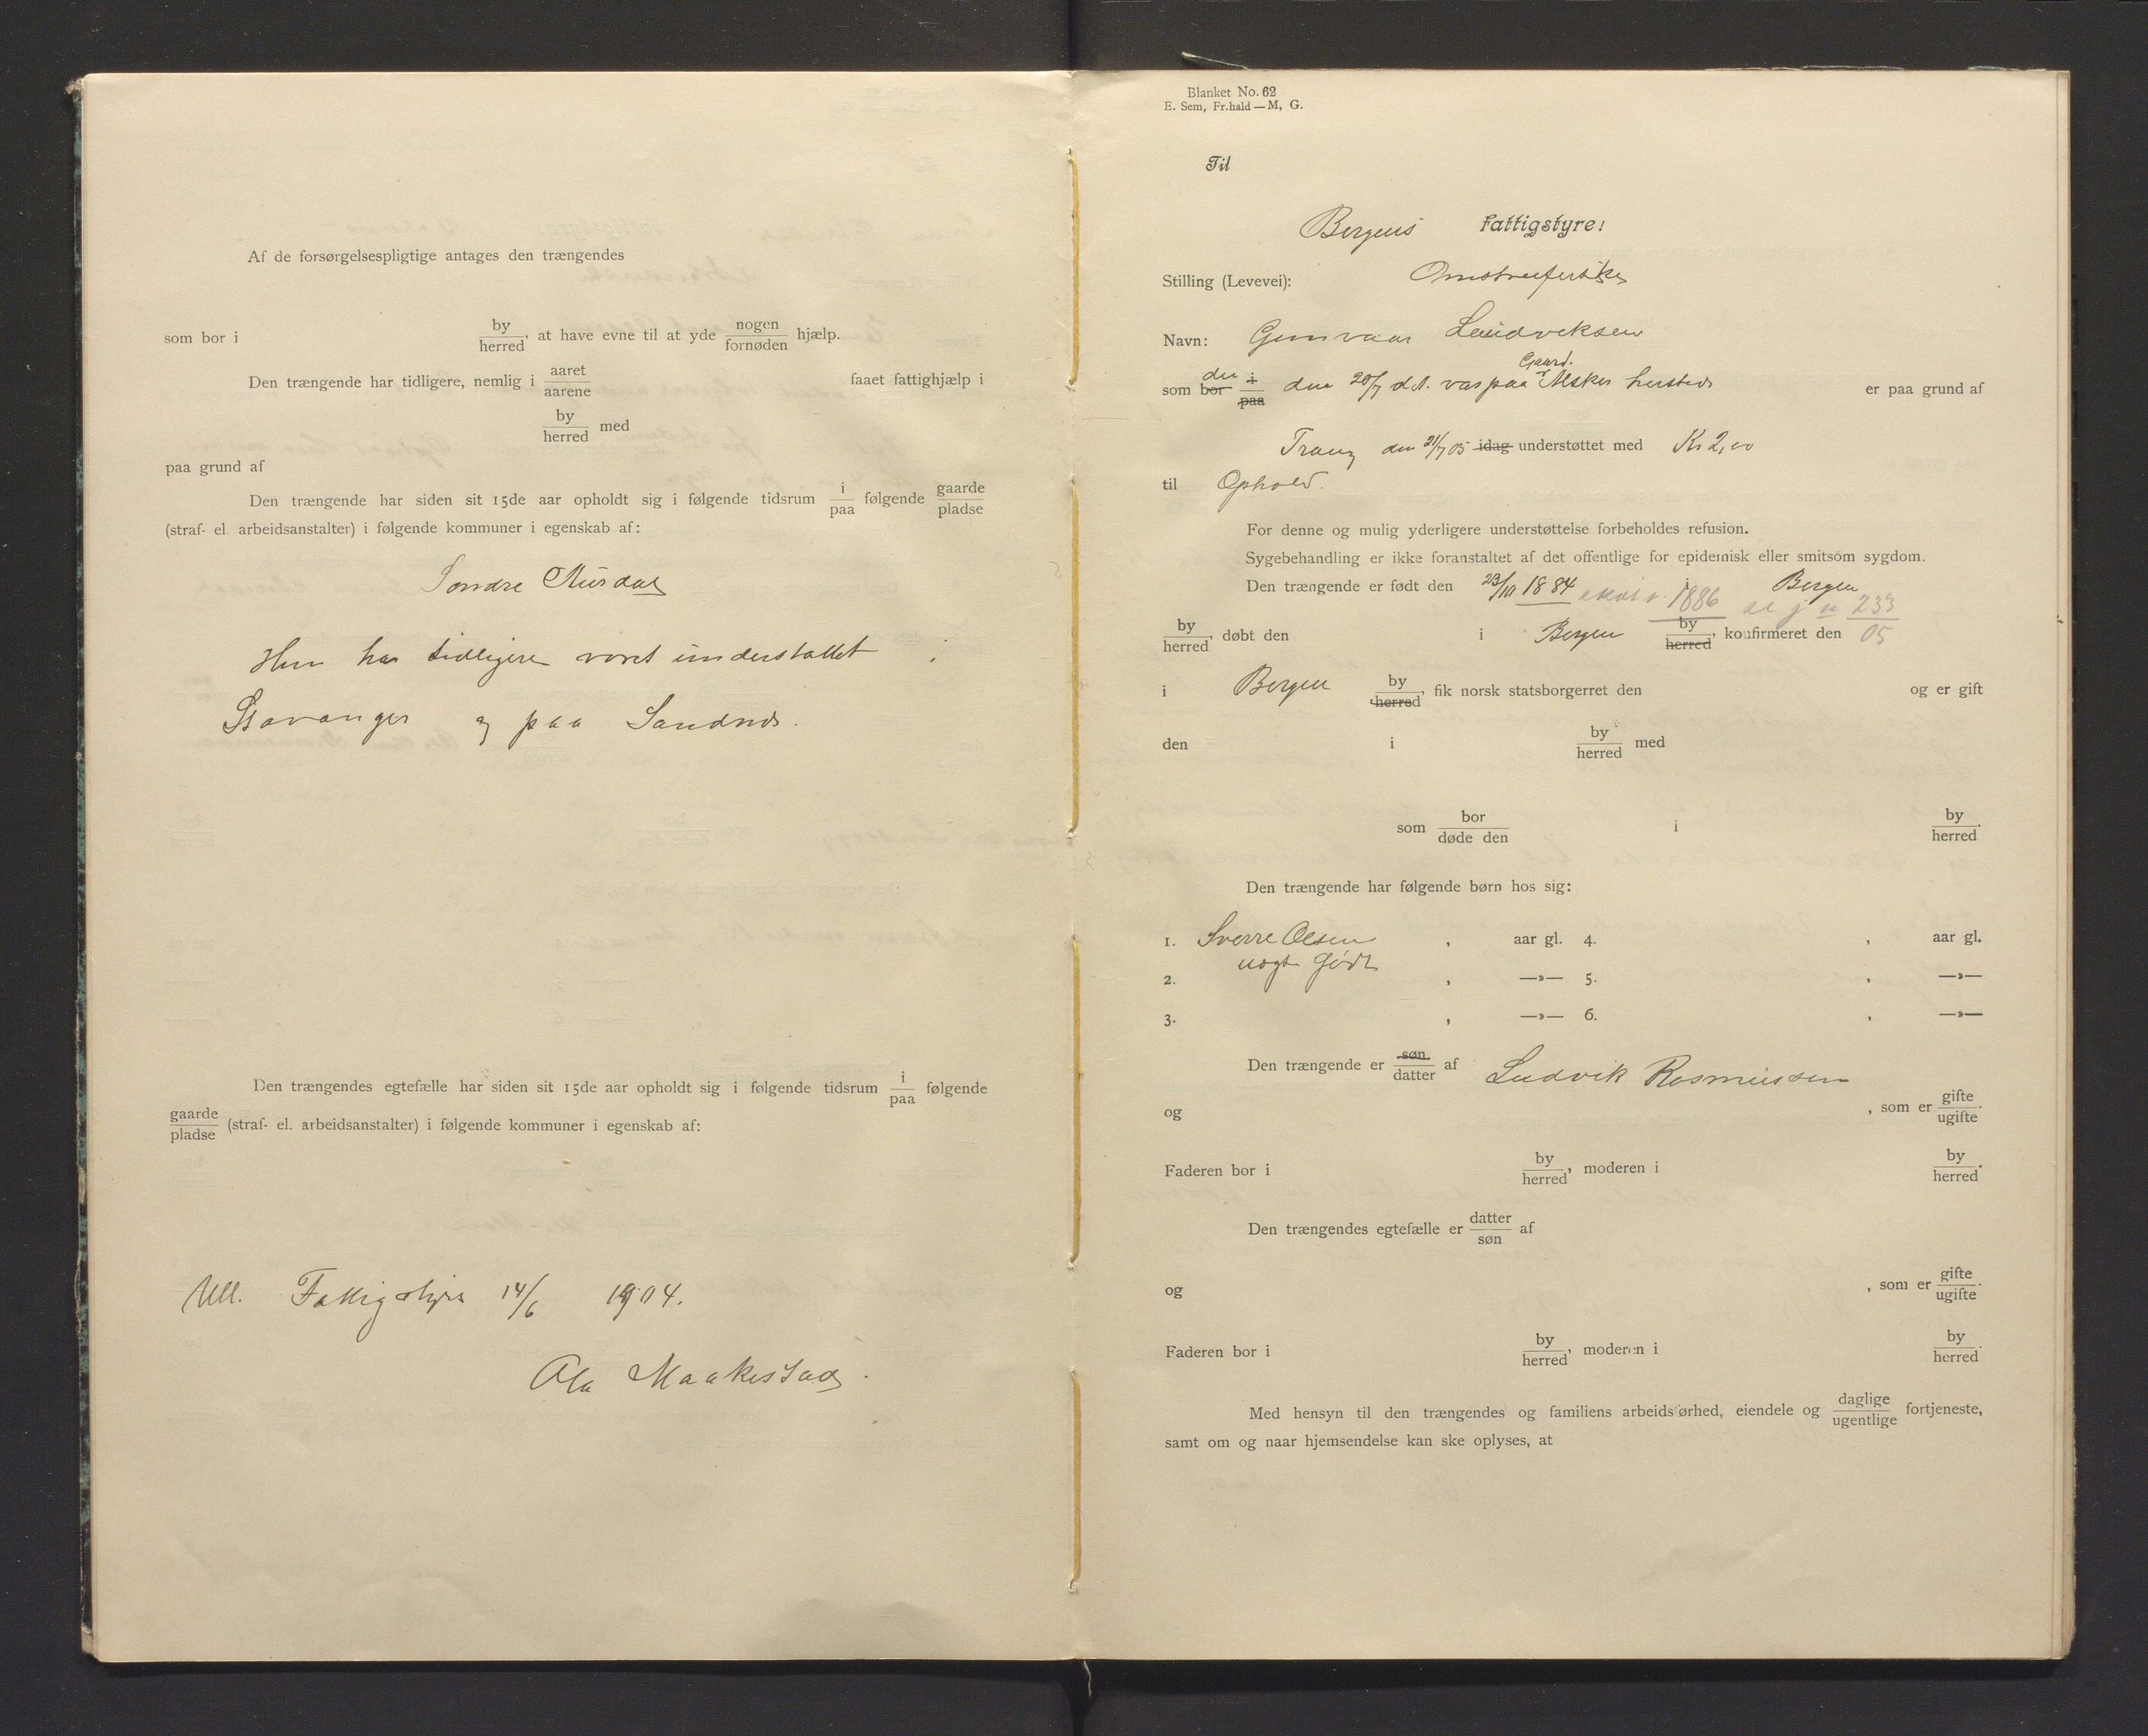 Af de forsørgelsespligtige antages den trængendes
som bor i by/herred, at have evne til at yde nogen/fornøden hjælp.
Den trængende har tidligere, nemlig i aaret/aarene faaet fattighjælp i
by/herred med
paa grund af
Den trængende har siden sit 15de aar opholdt sig i følgende tidsrum i/paa følgende gaarde/pladse
(straf- el. arbeidsanstalter) i følgende kommuner i egenskab af:
Søndre
Hun har tidligere været understøttet i
Stavanger og paa Sandnes.
Den trængendes egtefælle har siden sit 15de aar opholdt sig i følgende tidsrum i/paa følgende
gaarde/pladse (straf- el. arbeidsanstalter) i følgende kommuner i egenskab af:
Ull. Fattigstyre 14/6 1904.
Ola Maakestad.
Blanket No. 62
E. Sem, Fr.hald — M, G.
Til
Bergens Fattigstyre:
Stilling (Levevei): Omstreiferske
Navn: Gunvaar Ludviksen
som bor den i/paa den 20/7 d.A. var paa Gaard. er paa grund af
Trang den 21/7 05 idag understøttet med Kr 2,00
til Ophold.
For denne og mulig yderligere understøttelse forbeholdes refusion.
Sygebehandling er ikke foranstaltet af det offentlige for epidemisk eller smitsom sygdom.
Den trængende er født den 23/10 1884 1886 i Bergen 233
by/herred, døbt den i Bergen by/herred, konfirmeret den 05
i Bergen by/herred, fik norsk statsborgerret den og er gift
den i by/herred med
som bor/døde den i by/herred.
Den trængende har følgende børn hos sig:
1. Sverre Olsen , aar gl. 4. , aar gl.
uægte født
2. , —»— 5. , —»—
3. , —»— 6. , —»—
Den trængende er søn/datter af Ludvik Rasmussen
og , som er gifte/ugifte.
Faderen bor i by/herred, moderen i by/herred.
Den trængendes egtefælle er datter/søn af
og , som er gifte/ugifte.
Faderen bor i by/herred, moderen i by/herred.
Med hensyn til den trængendes og familiens arbeidsførhed, eiendele og daglige/ugentlige fortjeneste,
samt om og naar hjemsendelse kan ske oplyses, at